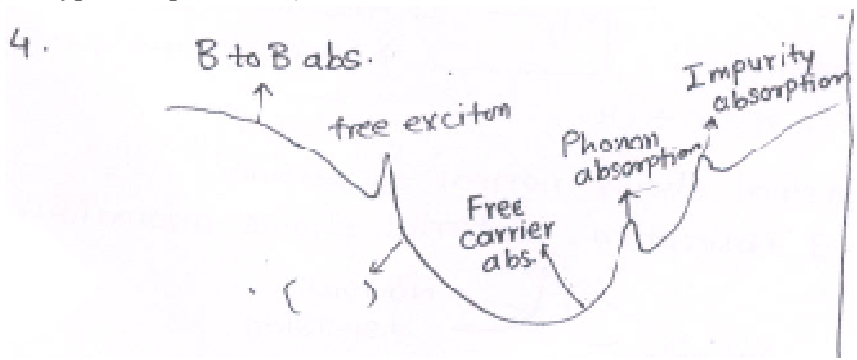 4.
B to B abs.
free exciton
Impurity
absorption
Phonon
absorption
Free
carrier
abs.
( )